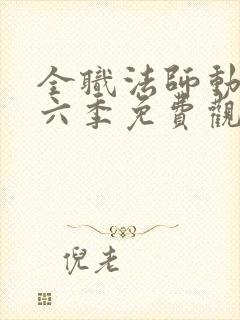 全職法師動
六季免費觀
倪老